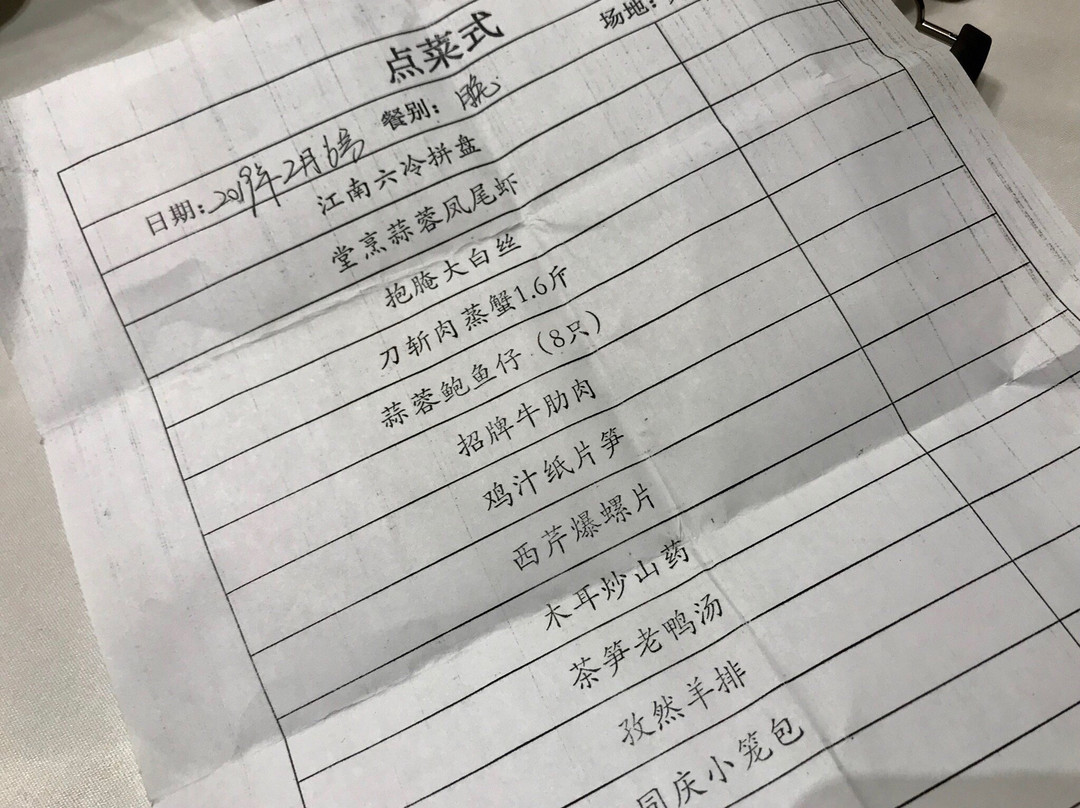 点菜式
日期：2019年2月6号 餐别：晚 场地：
江南六冷拼盘
堂烹蒜蓉凤尾虾
抱腌大白丝
刀斩肉蒸蟹1.6斤
蒜蓉鲍鱼仔（8只）
招牌牛肋肉
鸡汁纸片笋
西芹爆螺片
木耳炒山药
茶笋老鸭汤
孜然羊排
同庆小笼包